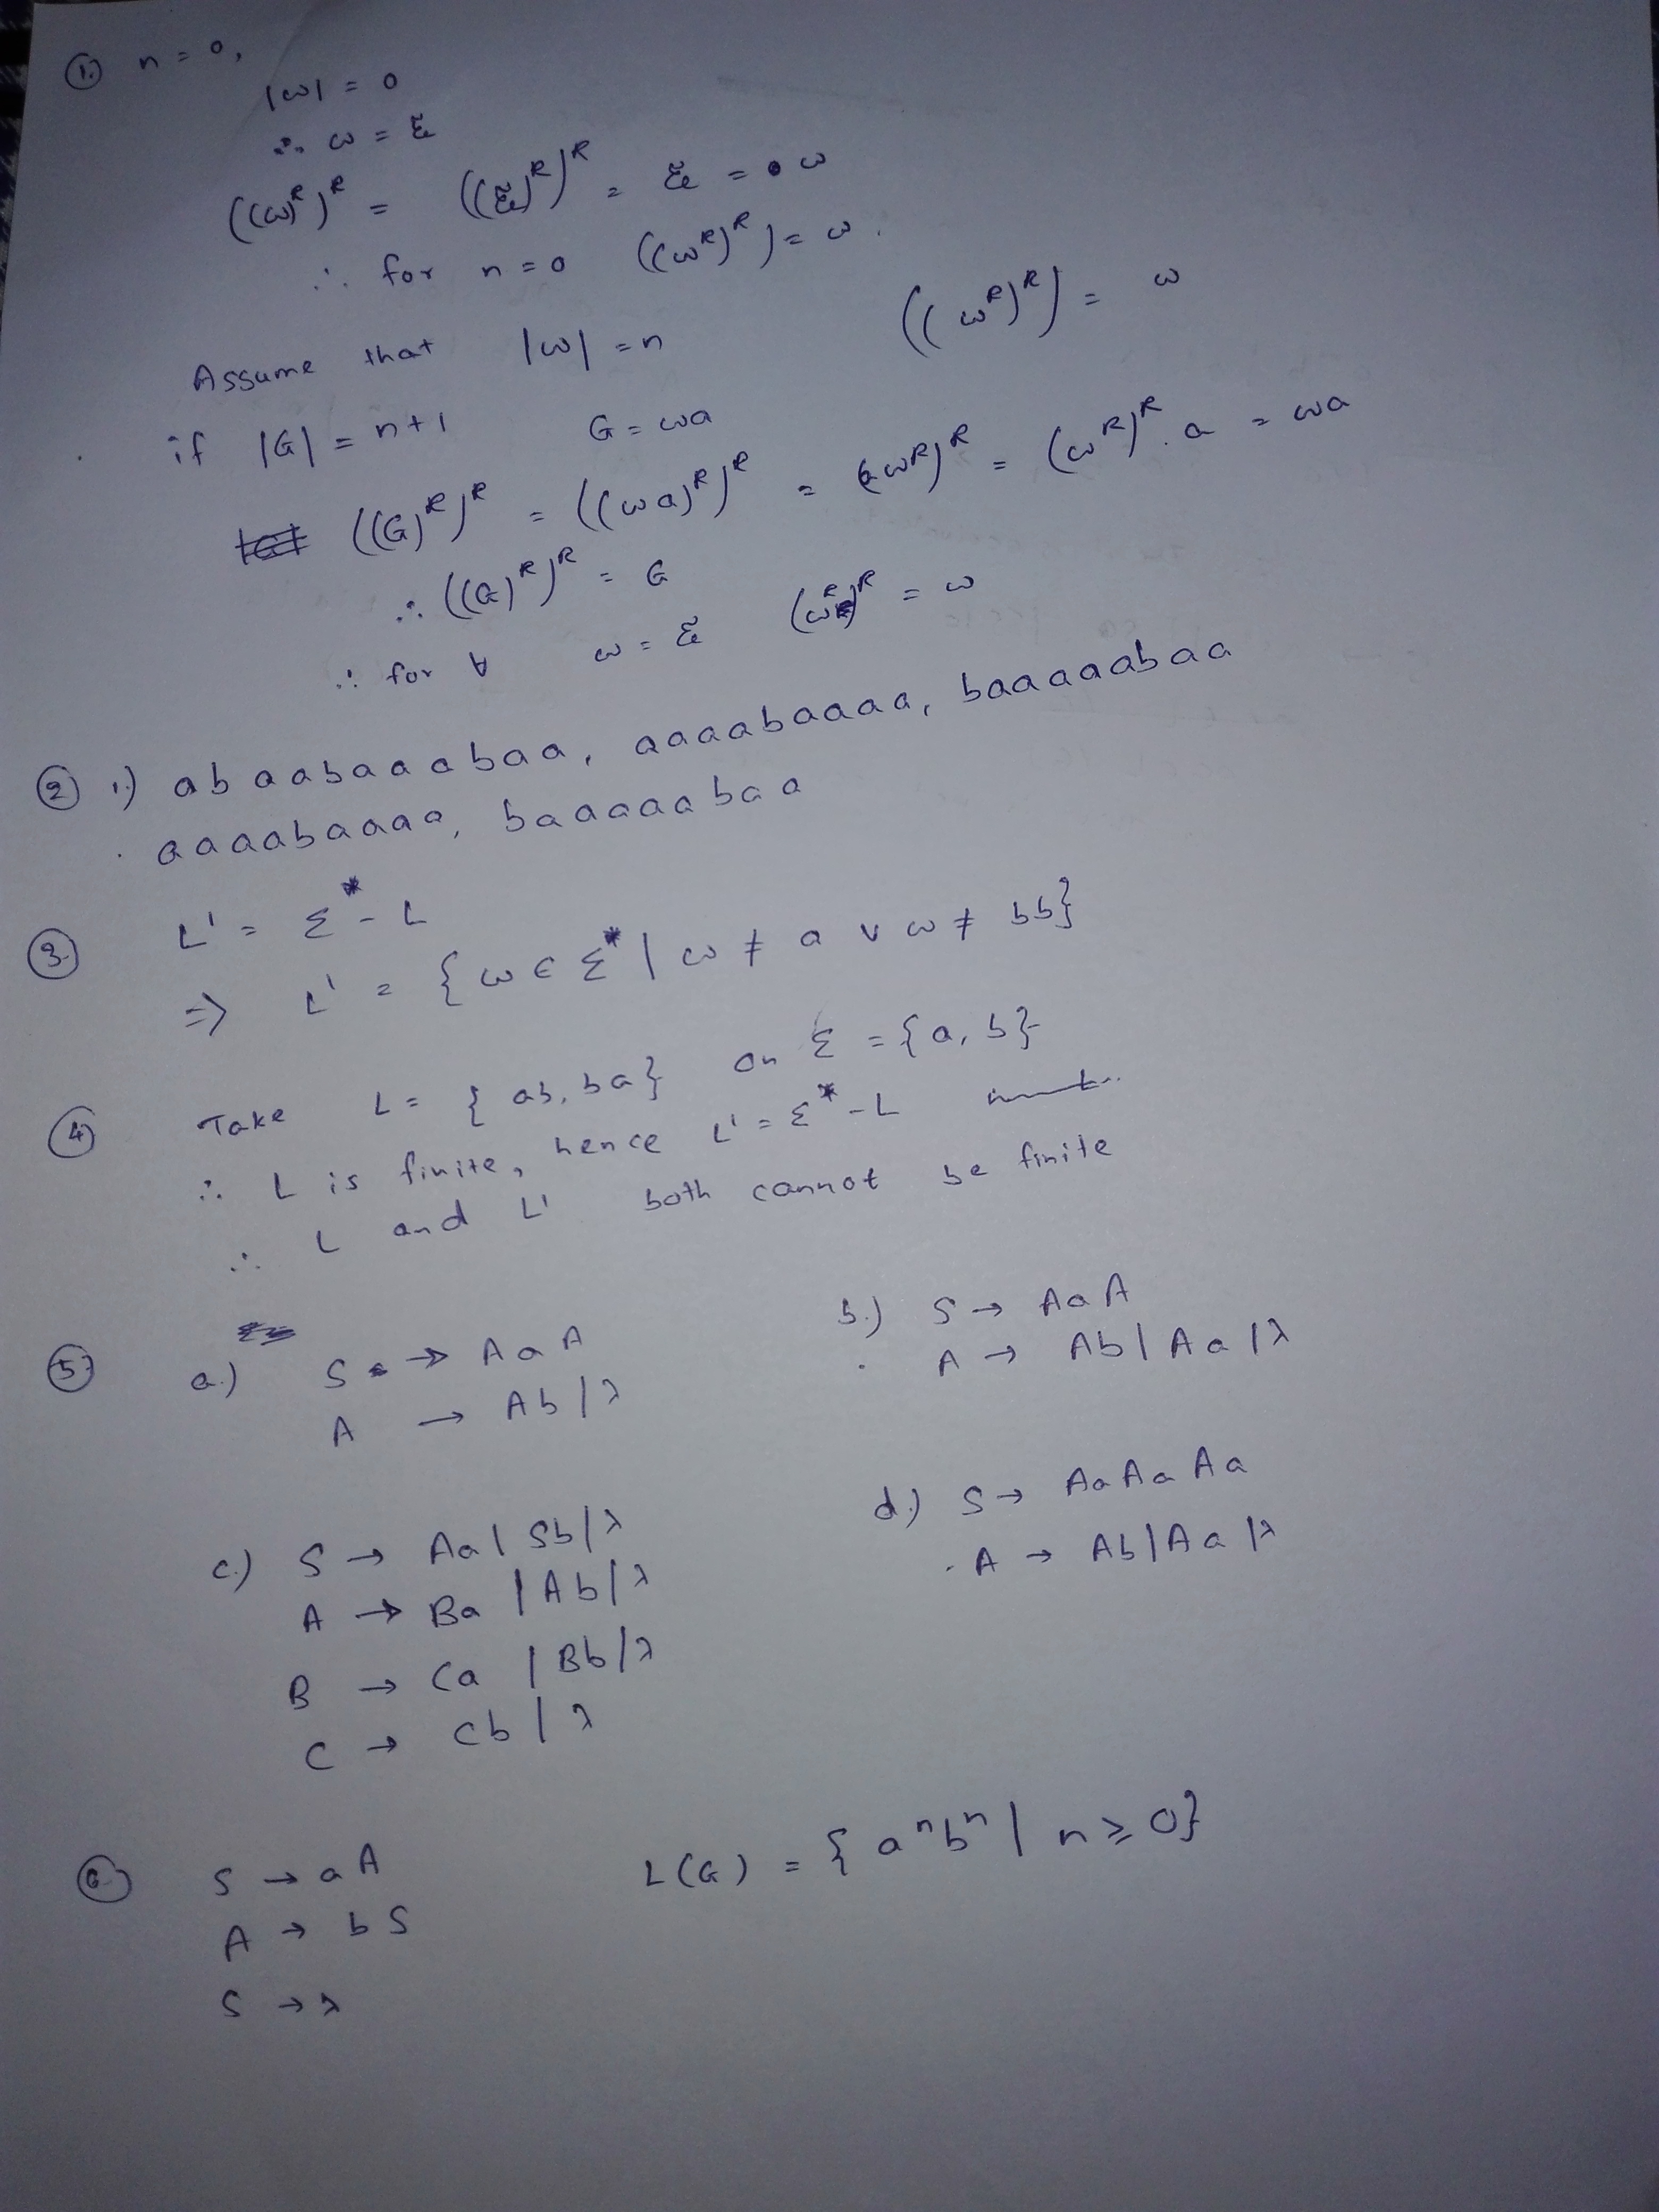 ① n = 0,
|ω| = 0
∴ ω = ε
((ω)ᴿ)ᴿ = ((ε)ᴿ)ᴿ = ε = ω
∴ for n = 0 ((ωᴿ)ᴿ) = ω.
Assume that |ω| = n ((ωᴿ)ᴿ) = ω
if |G| = n+1 G = ωa
((G)ᴿ)ᴿ = ((ωa)ᴿ)ᴿ = (aωᴿ)ᴿ = (ωᴿ)ᴿ.a = ωa
∴ ((G)ᴿ)ᴿ = G
∴ for ∀ ω = ε (ωᴿ)ᴿ = ω
② 1.) abaabaaabaa, aaaabaaaa, baaaaabaa
aaaabaaaa, baaaaabaa
③ L' = Σ* - L
=> L' = {ω ∈ Σ* | ω ≠ a ∨ ω ≠ bb}
④ Take L = {ab, ba} on Σ = {a, b}
∴ L is finite, hence L' = Σ* - L
∴ L and L' both cannot be finite
⑤ a.) S → AaA
A → Ab | λ
b.) S → AaA
A → Ab | Aa | λ
c.) S → Aa | Sb | λ
A → Ba | Ab | λ
B → Ca | Bb | λ
C → Cb | λ
d.) S → AaAaAa
A → Ab | Aa | λ
⑥ S → aA L(G) = {aⁿbⁿ | n ≥ 0}
A → bS
S → λ